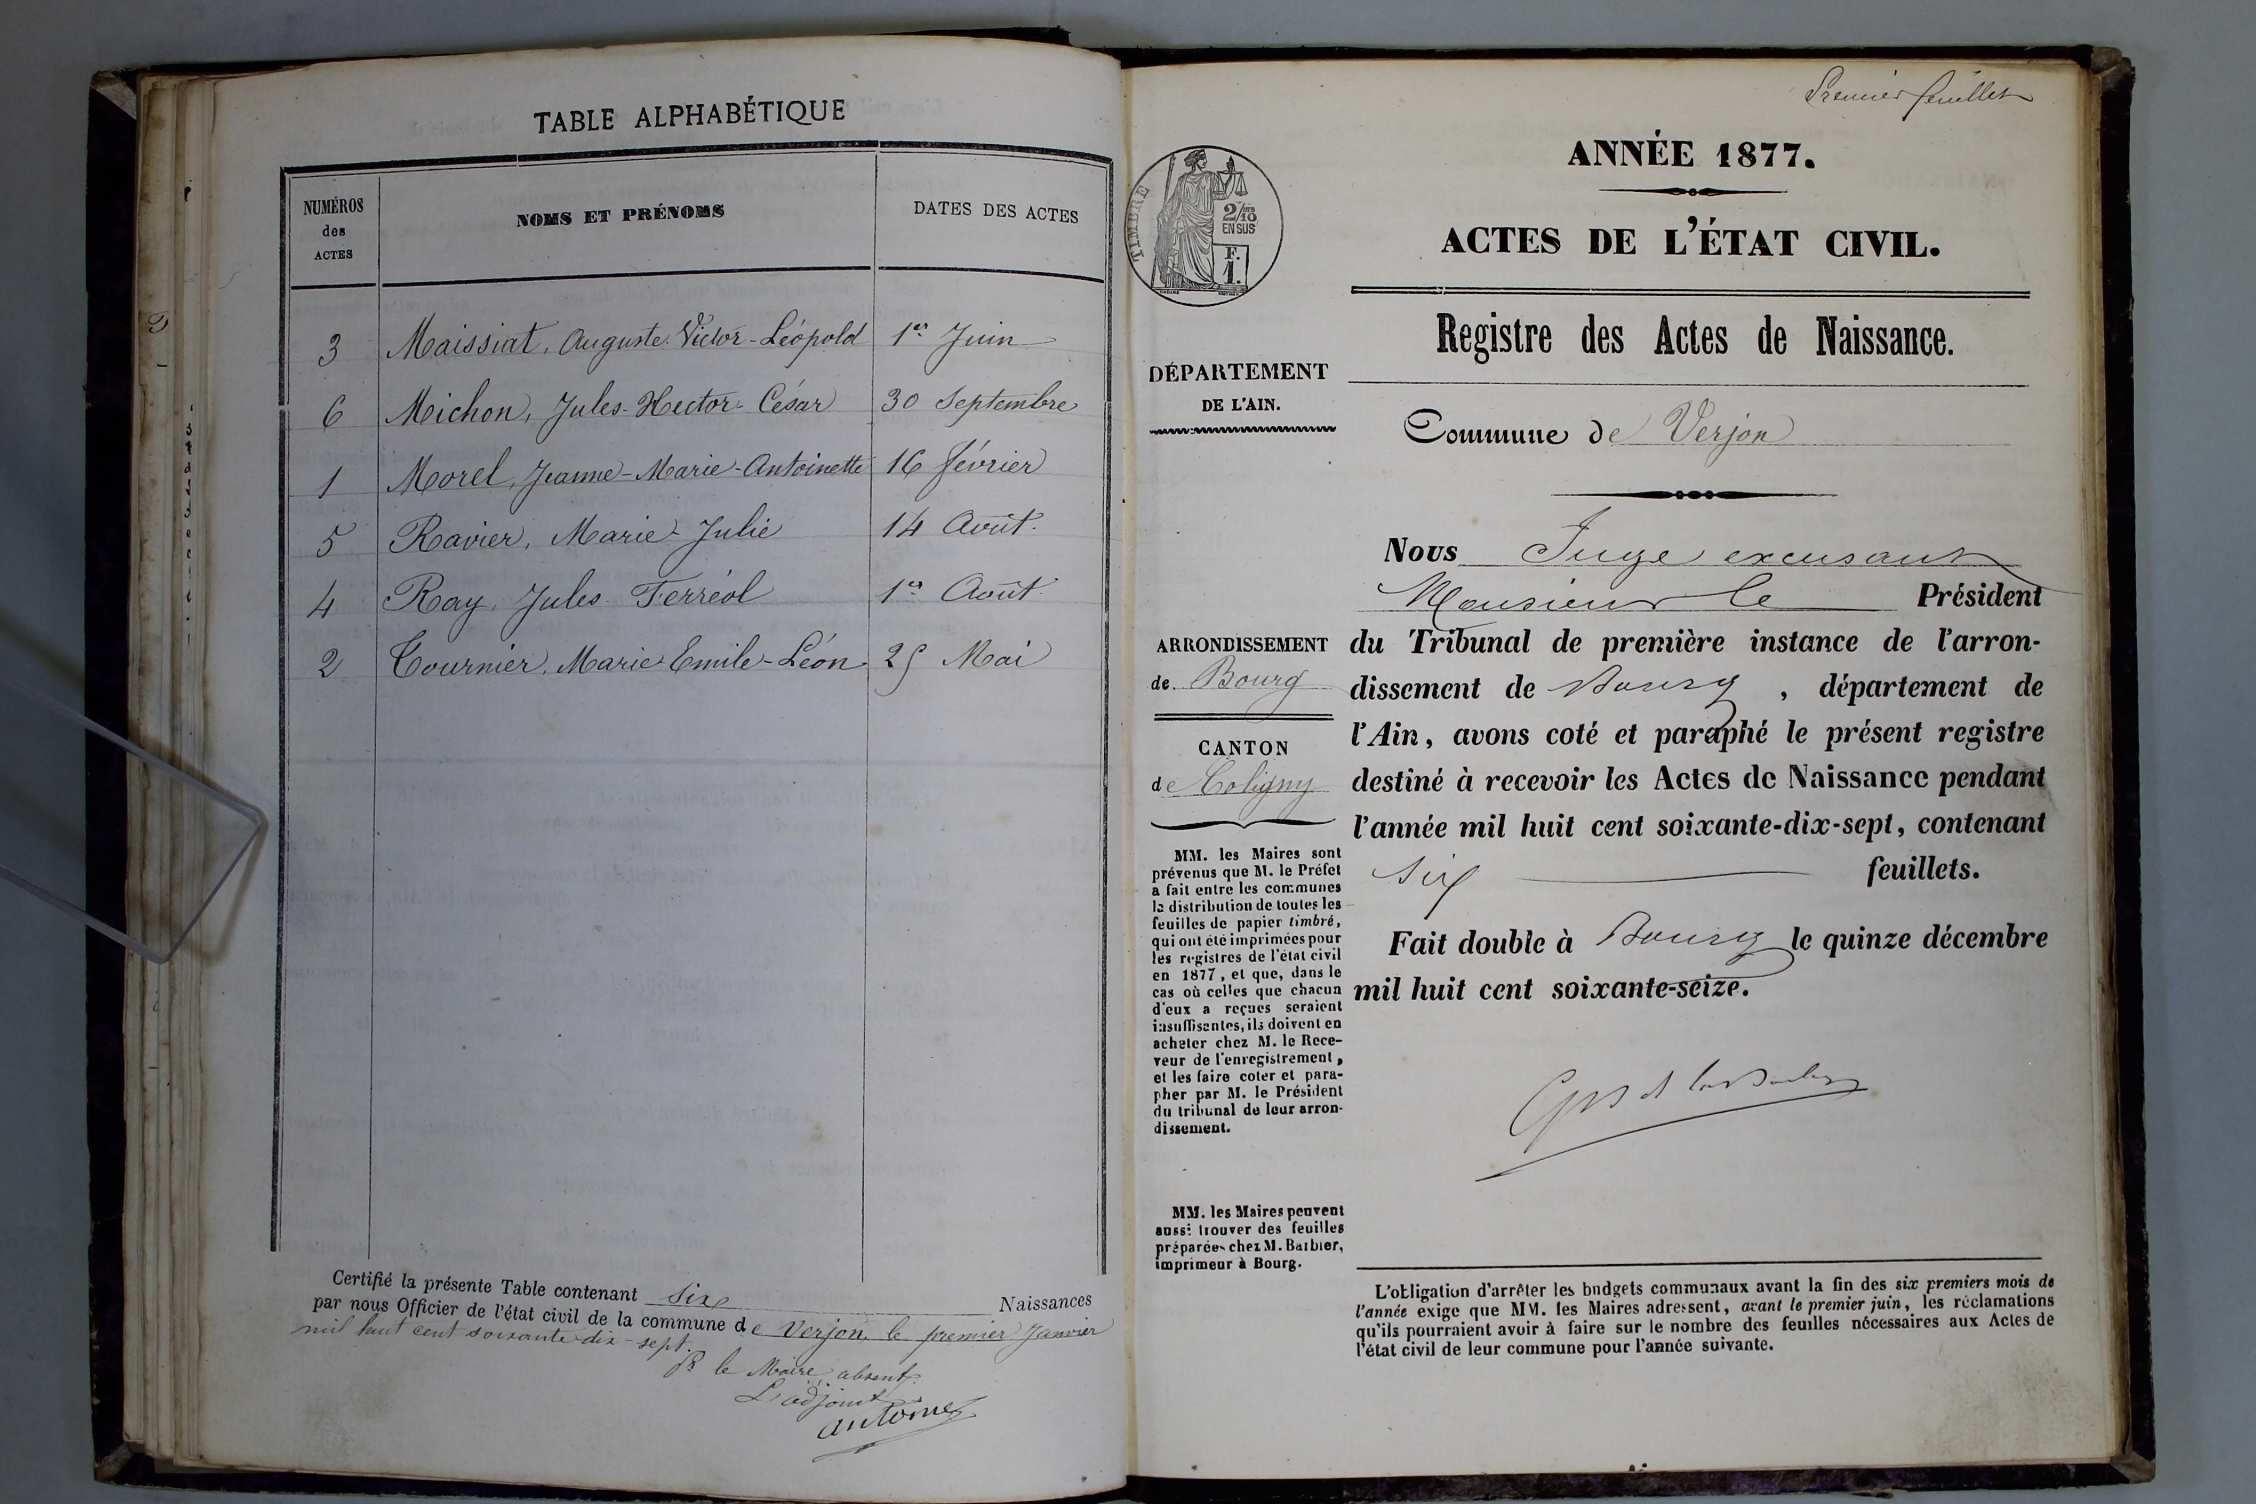 TABLE ALPHABÉTIQUE
NUMÉROS
des
ACTES
NOMS ET PRÉNOMS
DATES DES ACTES
3 Maissiat, Auguste Victor-Léopold 1er Juin
6 Michon, Jules-Hector-César 30 Septembre
1 Morel, Jeanne-Marie-Antoinette 16 février
5 Ravier, Marie-Julie 14 Août.
4 Ray, Jules Ferréol 1er Août.
2 Tournier, Marie-Emile-Léon 25 Mai
Certifié la présente Table contenant six Naissances
par nous Officier de l'état civil de la commune de Verjon le premier Janvier
mil huit cent soixante dix-sept.
Pr le Maire absent.
L'adjoint
Antoine
Premier feuillet
ANNÉE 1877.
ACTES DE L'ÉTAT CIVIL.
TIMBRE
2/10
EN SUS
F.
1.
Registre des Actes de Naissance.
DÉPARTEMENT
DE L'AIN.
Commune de Verjon
Nous Juge excusant
Monsieur le Président
ARRONDISSEMENT
de Bourg
CANTON
de Coligny
du Tribunal de première instance de l'arron-
dissement de Bourg, département de
l'Ain, avons coté et paraphé le présent registre
destiné à recevoir les Actes de Naissance pendant
l'année mil huit cent soixante-dix-sept, contenant
six feuillets.
Fait double à Bourg le quinze décembre
mil huit cent soixante-seize.
MM. les Maires sont
prévenus que M. le Préfet
a fait entre les communes
la distribution de toutes les
feuilles de papier timbré,
qui ont été imprimées pour
les registres de l'état civil
en 1877, et que, dans le
cas où celles que chacun
d'eux a reçues seraient
insuffisantes, ils doivent en
acheter chez M. le Rece-
veur de l'enregistrement,
et les faire coter et para-
pher par M. le Président
du tribunal de leur arron-
dissement.
MM. les Maires peuvent
aussi trouver des feuilles
préparées chez M. Barbier,
imprimeur à Bourg.
L'obligation d'arrêter les budgets communaux avant la fin des six premiers mois de
l'année exige que MM. les Maires adressent, avant le premier juin, les réclamations
qu'ils pourraient avoir à faire sur le nombre des feuilles nécessaires aux Actes de
l'état civil de leur commune pour l'année suivante.